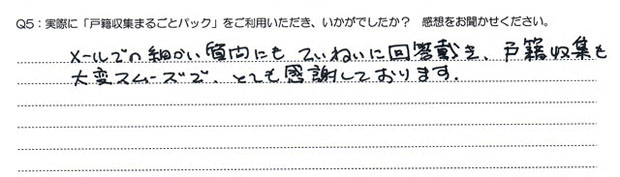 Q5：実際に「戸籍収集まるごとパック」をご利用いただき、いかがでしたか？ 感想をお聞かせください。
メールでの細かい質問にもていねいに回答戴き、戸籍収集も
大変スムーズで、とても感謝しております。